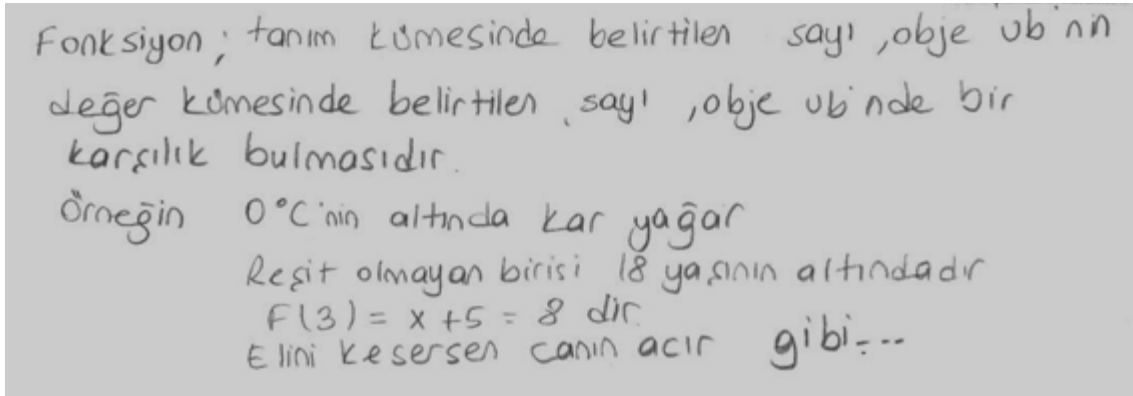 Fonksiyon; tanım kümesinde belirtilen sayı, obje vb'nin
değer kümesinde belirtilen sayı, obje vb'nde bir
karşılık bulmasıdır.
Örneğin 0°C'nin altında kar yağar
Reşit olmayan birisi 18 yaşının altındadır
F(3) = x +5 = 8 dir.
Elini kesersen canın acır gibi...